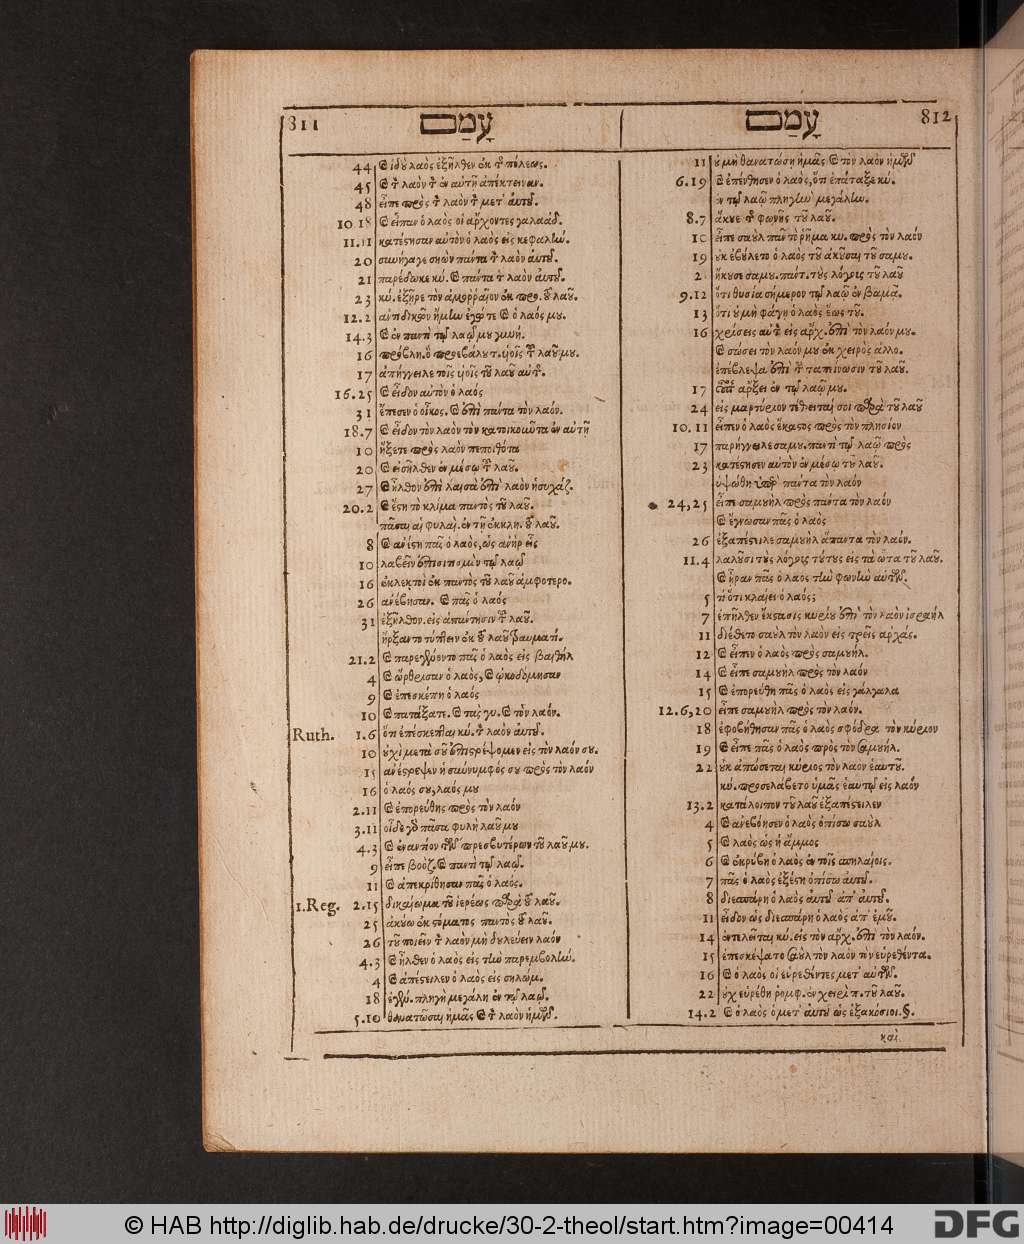 811 עָמַם
44 καὶ ἰδοὺ λαὸς ἐξῆλθεν ἐκ τῆς πόλεως.
45 καὶ τὸν λαὸν τὸν ἐν αὐτῇ ἀπέκτειναν.
48 εἶπε πρὸς τὸν λαὸν τὸν μετ' αὐτοῦ.
10 18 καὶ εἶπαν ὁ λαὸς οἱ ἄρχοντες γαλαάδ.
11.11 κατέστησαν αὐτὸν ὁ λαὸς εἰς κεφαλὴν.
20 συνήγαγε σηὼν πάντα τὸν λαὸν αὐτοῦ.
21 παρέδωκε κύ. καὶ πάντα τὸν λαὸν αὐτοῦ.
23 κύ. ἐξῆρε τὸν ἀμοῤῥαῖον ἐκ προ. τοῦ λαοῦ.
12.2 ἀντιδικῶν ἤμην ἐγώ τε καὶ ὁ λαός μου.
14.3 καὶ ἐν παντὶ τῷ λαῷ μου γυνή.
16
17 ἀπήγγειλε τοῖς υἱοῖς τοῦ λαοῦ αὐτῆς.
16.25 καὶ εἶδον αὐτὸν ὁ λαός
31 ἔπεσεν ὁ οἶκος. καὶ ἐπὶ πάντα τὸν λαόν.
18.7 καὶ εἶδον τὸν λαὸν τὸν κατοικοῦντα ἐν αὐτῇ
10 ἥξετε πρὸς λαὸν πεποιθότα
20 καὶ εἰσῆλθεν ἐν μέσῳ τοῦ λαοῦ.
27 καὶ ἦλθον ἐπὶ λαισὰ ἐπὶ λαὸν ἡσυχάζ.
20.2 καὶ ἔστη τὸ κλίμα παντὸς τοῦ λαοῦ.
πᾶσαι αἱ φυλαὶ. ἐν τῇ ἐκκλη. τοῦ λαοῦ.
8 καὶ ἀνέστη πᾶς ὁ λαὸς, ὡς ἀνὴρ εἷς
10 λαβεῖν ἐπισιτισμὸν τῷ λαῷ
16 ἐκλεκτοὶ ἐκ παντὸς τοῦ λαοῦ ἀμφοτερο.
26 ἀνέβησαν. καὶ πᾶς ὁ λαός
31 ἐξῆλθον. εἰς ἀπάντησιν τοῦ λαοῦ.
ἤρξαντο τύπτειν ἐκ τοῦ λαοῦ τραυματί.
21.2 καὶ παρεγένοντο πᾶς ὁ λαὸς εἰς βαιθὴλ
4 καὶ ὤρθρισαν ὁ λαὸς, καὶ ᾠκοδόμησαν
9 καὶ ἐπεσκέπη ὁ λαός
10 καὶ πατάξατε. καὶ τὰς γυ. καὶ τὸν λαόν.
Ruth. 1.6 ὅτι ἐπέσκεπται κύ. τὸν λαὸν αὐτοῦ.
10 οὐχὶ μετὰ σοῦ ἐπιστρέψομεν εἰς τὸν λαόν σου.
15 ἀνέστρεψεν ἡ σύννυμφός σου πρὸς τὸν λαὸν
16 ὁ λαός σου, λαός μου
2.11 καὶ ἐπορεύθης πρὸς τὸν λαόν
3.11 οἶδε γὰρ πᾶσα φυλὴ λαοῦ μου
4.3 καὶ ἐναντίον τῶν πρεσβυτέρων τοῦ λαοῦ μου.
9 εἶπε βοόζ. καὶ παντὶ τῷ λαῷ.
11 καὶ ἀπεκρίθησαν πᾶς ὁ λαός.
1.Reg. 2.15 δικαίωμα τοῦ ἱερέως παρὰ τοῦ λαοῦ.
25 ἀκούω ἐκ στόματος παντὸς τοῦ λαοῦ.
26 τοῦ ποιεῖν τὸν λαὸν μὴ δουλεύειν λαόν
4.3 καὶ ἦλθεν ὁ λαὸς εἰς τὴν παρεμβολὴν.
4 καὶ ἀπέστειλεν ὁ λαὸς εἰς σηλώμ.
18 ἐγέν. πληγὴ μεγάλη ἐν τῷ λαῷ.
5.10 θανατῶσαι ἡμᾶς καὶ τὸν λαὸν ἡμῶν.
עָמַם 812
11 οὐ μὴ θανατώσῃ ἡμᾶς καὶ τὸν λαὸν ἡμῶν
6.19 καὶ ἐπένθησεν ὁ λαὸς, ὅτι ἐπάταξε κύ.
ἐν τῷ λαῷ πληγὴν μεγάλην.
8.7 ἄκουε τῆς φωνῆς τοῦ λαοῦ.
10 εἶπε σαοὺλ πᾶν τὸ ῥῆμα κυ. πρὸς τὸν λαόν
19 οὐκ ἐβούλετο ὁ λαὸς τοῦ ἀκοῦσαι τοῦ σαμου.
2 ἤκουσε σαμου. πάντ. τοὺς λόγους τοῦ λαοῦ
9.12 ὅτι θυσία σήμερον τῷ λαῷ ἐν βαμᾷ.
13 ὅτι οὐ μὴ φάγῃ ὁ λαὸς ἕως τοῦ.
16 χρίσεις αὐτὸν εἰς ἄρχ. ἐπὶ τὸν λαόν μου.
καὶ σώσει τὸν λαόν μου ἐκ χειρὸς ἀλλο.
ἐπέβλεψα ἐπὶ τὴν ταπείνωσιν τοῦ λαοῦ.
17 οὗτος ἄρξει ἐν τῷ λαῷ μου.
24 εἰς μαρτύριον τέθειταί σοι παρὰ τοῦ λαοῦ
10.11 εἶπεν ὁ λαὸς ἕκαστος πρὸς τὸν πλησίον
17 παρήγγειλε σαμου. παντὶ τῷ λαῷ πρὸς
23 κατέστησεν αὐτὸν ἐν μέσῳ τοῦ λαοῦ.
ὑψώθη ὑπὲρ πάντα τὸν λαόν
24,25 εἶπε σαμουὴλ πρὸς πάντα τὸν λαόν
καὶ ἔγνωσαν πᾶς ὁ λαὸς
26 ἐξαπέστειλε σαμουὴλ ἅπαντα τὸν λαόν.
11.4 λαλοῦσι τοὺς λόγους τούτους εἰς τὰ ὦτα τοῦ λαοῦ.
καὶ ἦραν πᾶς ὁ λαος τὴν φωνὴν αὐτῶν.
5 τί ὅτι κλαίει ὁ λαός;
7 ἐπῆλθεν ἔκστασις κυρίου ἐπὶ τὸν λαὸν ἰσραήλ
11 διέθετο σαοὺλ τὸν λαὸν εἰς τρεῖς ἀρχάς.
12 καὶ εἶπεν ὁ λαὸς πρὸς σαμουήλ.
14 καὶ εἶπε σαμουὴλ πρὸς τὸν λαὸν
15 καὶ ἐπορεύθη πᾶς ὁ λαὸς εἰς γάλγαλα
12.6,20 εἶπε σαμουὴλ πρὸς τὸν λαόν.
18 ἐφοβήθησαν πᾶς ὁ λαὸς σφόδρα τὸν κύριον
19 καὶ εἶπε πᾶς ὁ λαὸς πρὸς τὸν σαμουήλ.
22 οὐκ ἀπώσεται κύριος τὸν λαὸν ἑαυτοῦ.
κύ. προσελάβετο ὑμᾶς ἑαυτῷ εἰς λαόν
13.2 κατάλοιπον τοῦ λαοῦ ἐξαπέστειλεν
4 καὶ ἀνεβόησεν ὁ λαὸς ὀπίσω σαοὺλ
5 καὶ λαὸς ὡς ἡ ἄμμος
6 καὶ ἐκρύβη ὁ λαὸς ἐν τοῖς σπηλαίοις.
7 πᾶς ὁ λαὸς ἐξέστη ὀπίσω αὐτοῦ.
8 διεσπάρη ὁ λαὸς αὐτοῦ ἀπ' αὐτοῦ.
11 εἶδον ὡς διεσπάρη ὁ λαὸς ἀπ' ἐμοῦ.
14 ἐντελεῖται κύ. εἰς τὸν ἄρχ. ἐπὶ τὸν λαόν.
15 ἐπεσκέψατο σαοὺλ τὸν λαὸν τὸν εὑρεθέντα.
16 καὶ ὁ λαὸς οἱ εὑρεθέντες μετ' αὐτῶν.
22 οὐχ εὑρέθη ῥομφ. ἐν χειρὶ π. τοῦ λαοῦ.
14.2 καὶ ὁ λαὸς ὁ μετ' αὐτοῦ ὡς ἑξακόσιοι. §.
καὶ
© HAB http://diglib.hab.de/drucke/30-2-theol/start.htm?image=00414 DFG